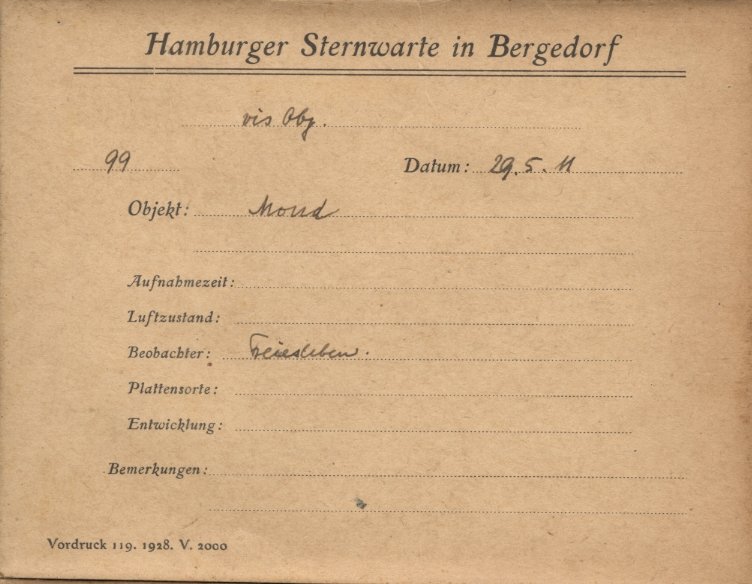 Hamburger Sternwarte in Bergedorf
vis Obj.
99 Datum: 29.5.11
Objekt: Mond
Aufnahmezeit:
Luftzustand:
Beobachter: Freiesleben.
Plattensorte:
Entwicklung:
Bemerkungen:
Vordruck 119. 1928. V. 2000